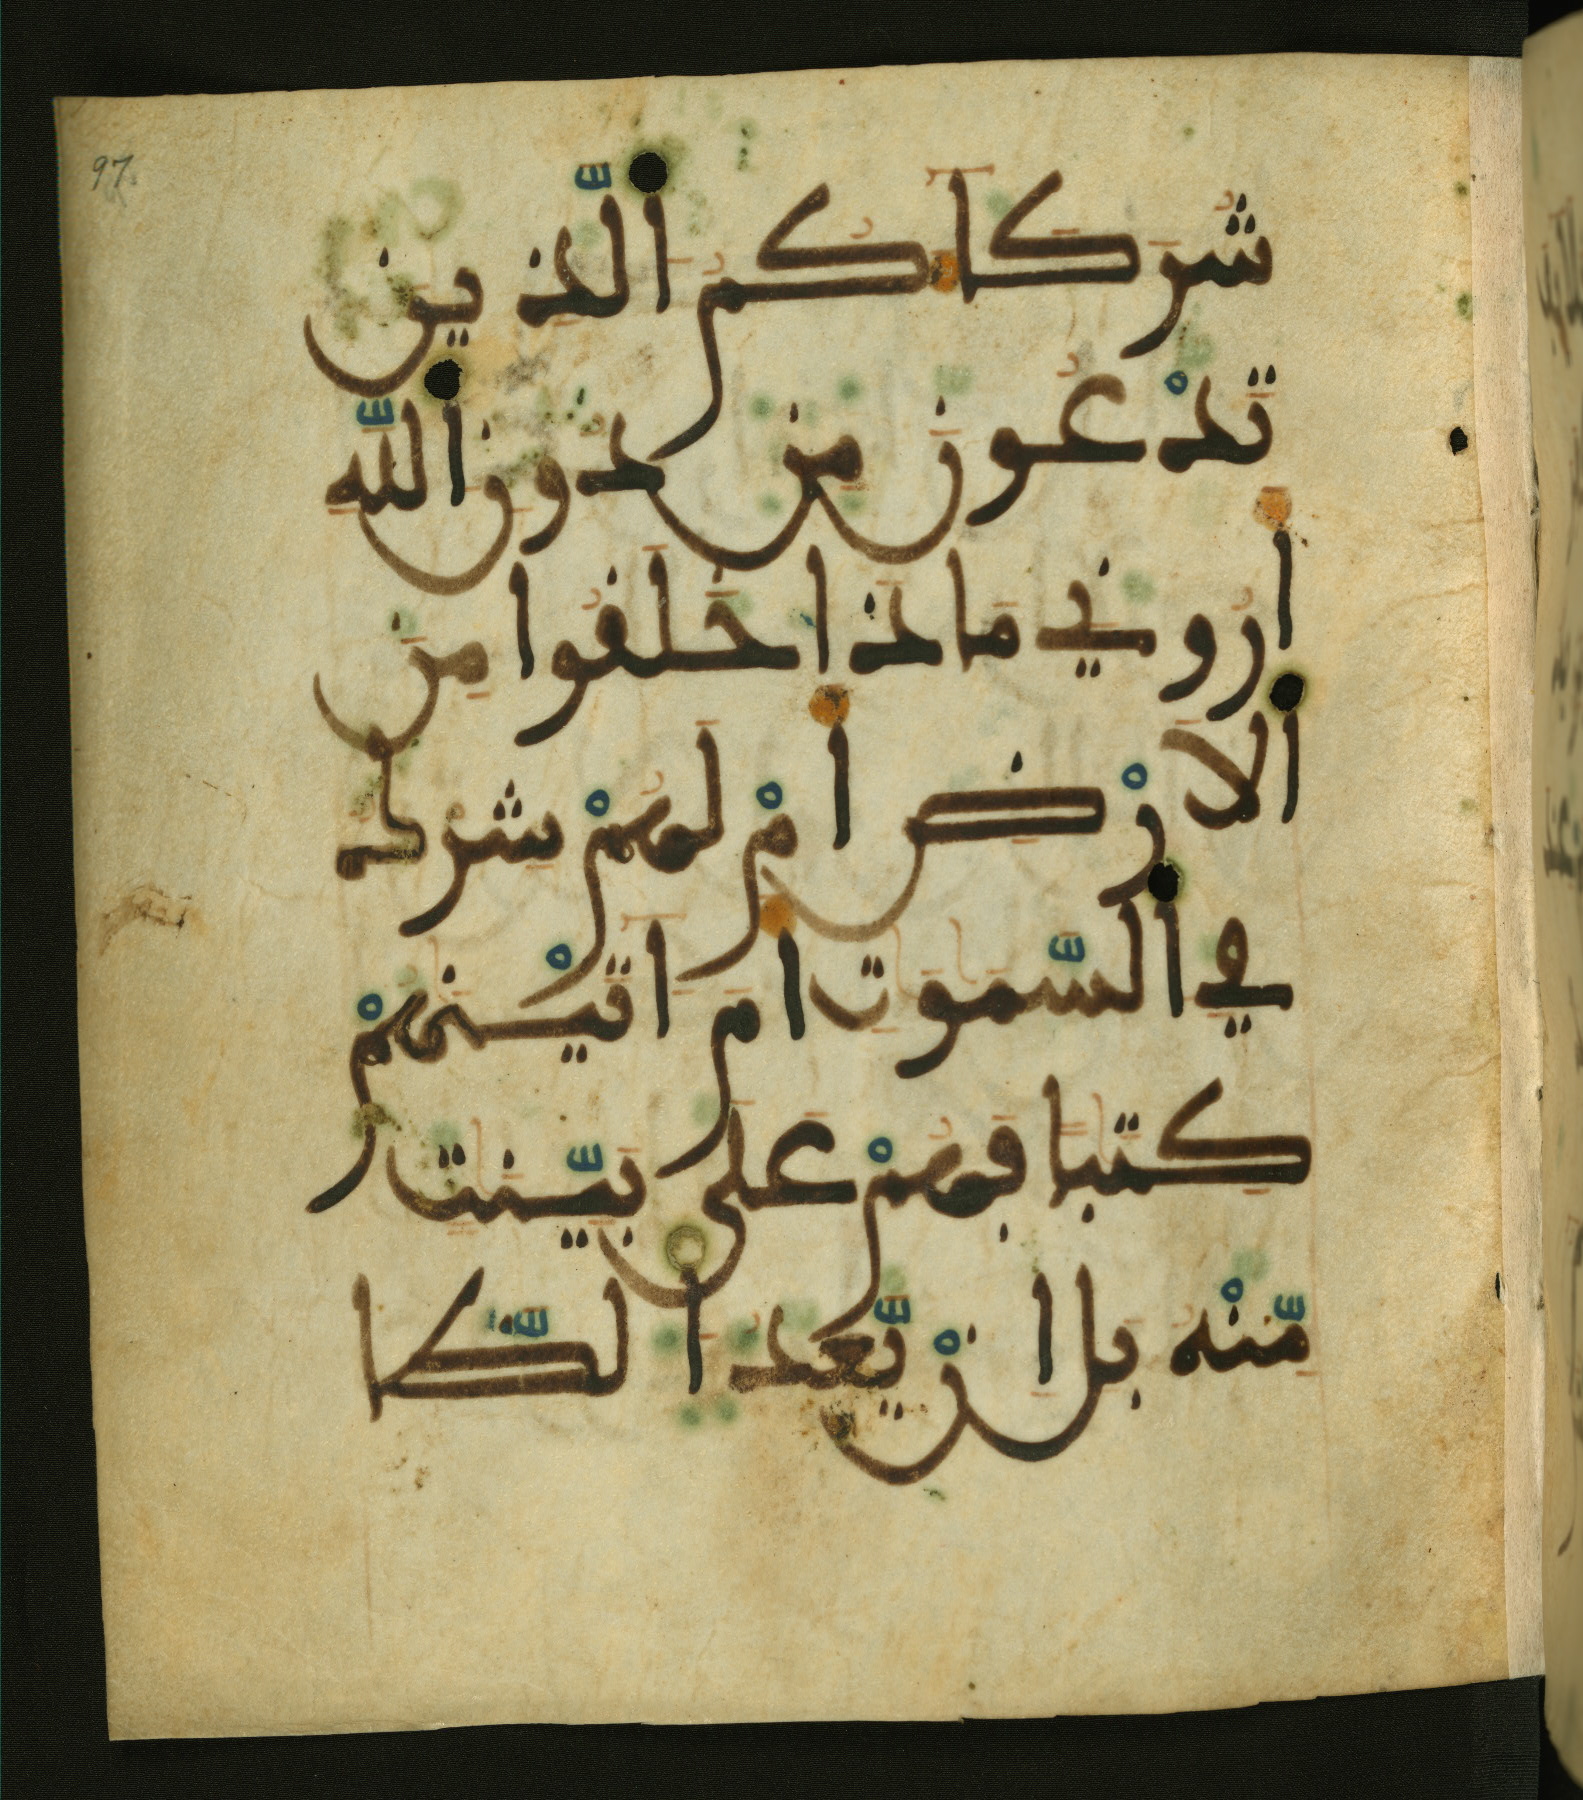 97.
شركاكم الذين
تدعون من دون الله
اروني ماذا خلقوا من
الارض ام لهم شرك
في السموت ام اتينهم
كتبا فهم على بينت
منه بل ان يعد الظا